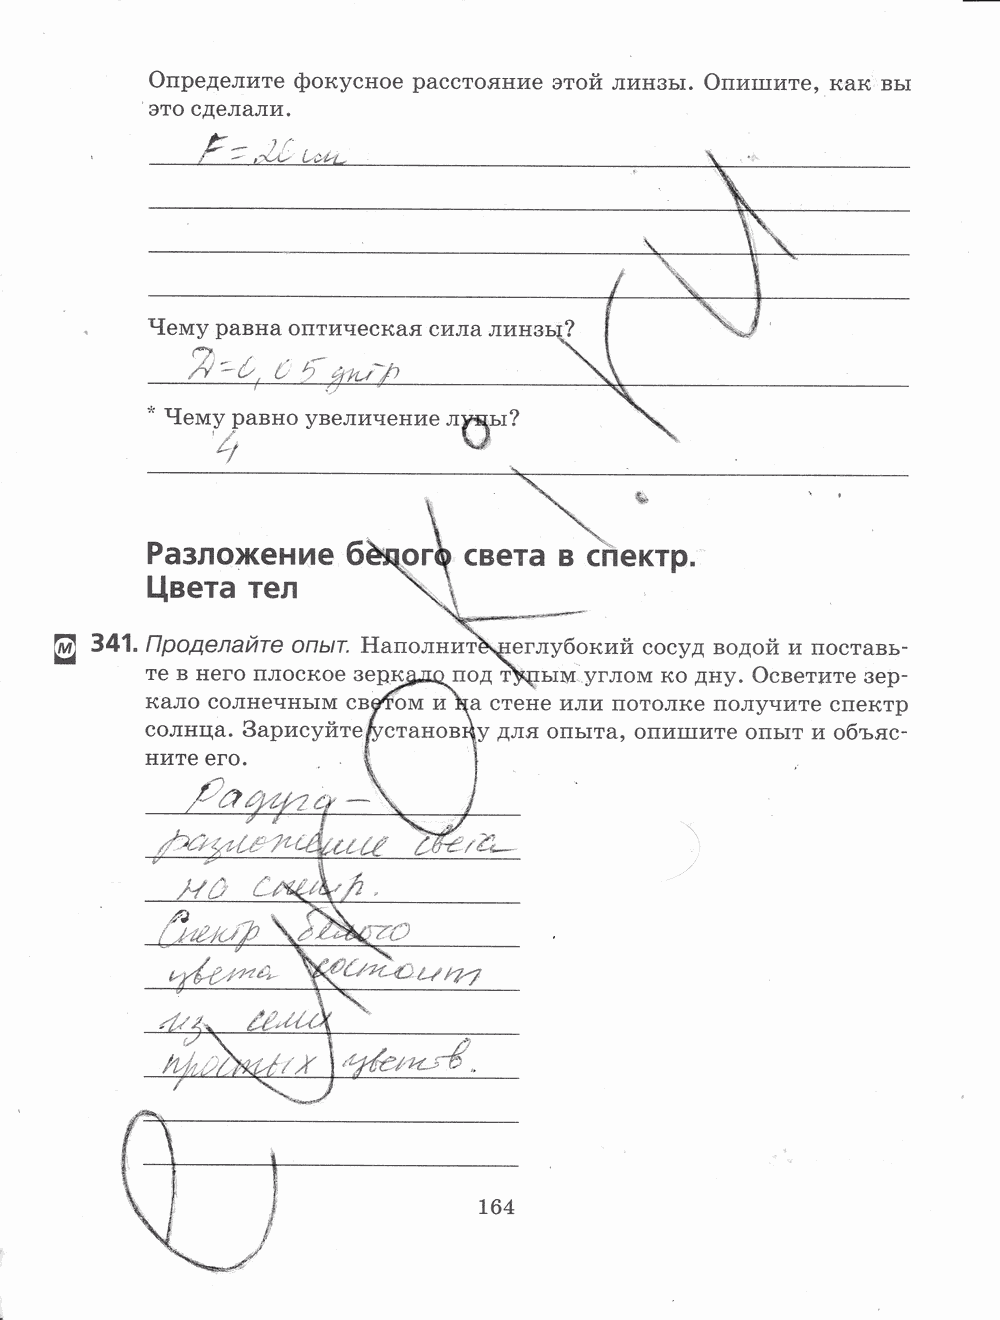 Определите фокусное расстояние этой линзы. Опишите, как вы
это сделали.
F = 20 см
Чему равна оптическая сила линзы?
Д=0,05 дптр
* Чему равно увеличение лупы?
4
Разложение белого света в спектр.
Цвета тел
М 341. Проделайте опыт. Наполните неглубокий сосуд водой и поставь-
те в него плоское зеркало под тупым углом ко дну. Осветите зер-
кало солнечным светом и на стене или потолке получите спектр
солнца. Зарисуйте установку для опыта, опишите опыт и объяс-
ните его.
Радуга –
разложение света
на спектр.
Спектр белого
цвета состоит
из семи
простых цветов.
164